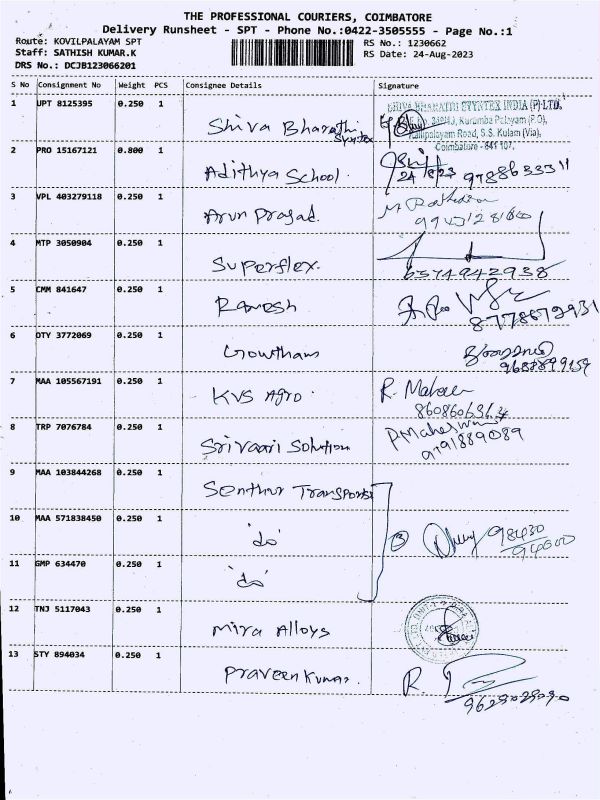 THE PROFESSIONAL COURIERS, COIMBATORE
Delivery Runsheet - SPT - Phone No.:0422-3505555 - Page No.:1
Route: KOVILPALAYAM SPT
RS No.: 1230662
Staff: SATHISH KUMAR.K
RS Date: 24-Aug-2023
DRS No.: DCJB123066201
S No Consignment No Weight PCS Consignee Details Signature
1 UPT 8125395 0.250 1 Shiva Bharathi Syntex
SHIVA BHARATHI SYNTEX INDIA (P) LTD,
Kurumba Palayam (P.O),
Kovilpalayam Road, S.S. Kulam (Via),
Coimbatore - 641 107.
2 PRO 15167121 0.800 1 Adithya School. 24/8/23 9788633311
3 VPL 403279118 0.250 1 Arun Prasad.
4 MTP 3050904 0.250 1 Superflex. 6374942938
5 CMM 841647 0.250 1 Ramesh
6 OTY 3772069 0.250 1 Gowtham
7 MAA 105567191 0.250 1 KVS Agro.
8 TRP 7076784 0.250 1 Srivaari Solution P. Maheswari
9791889089
9 MAA 103844268 0.250 1 Senthur Transports
10 MAA 571838450 0.250 1 'do' 3 98430
94000
11 GMP 634470 0.250 1 'do'
12 TNJ 5117043 0.250 1 Mira Alloys
13 STY 894034 0.250 1 Praveen Kumar. R.